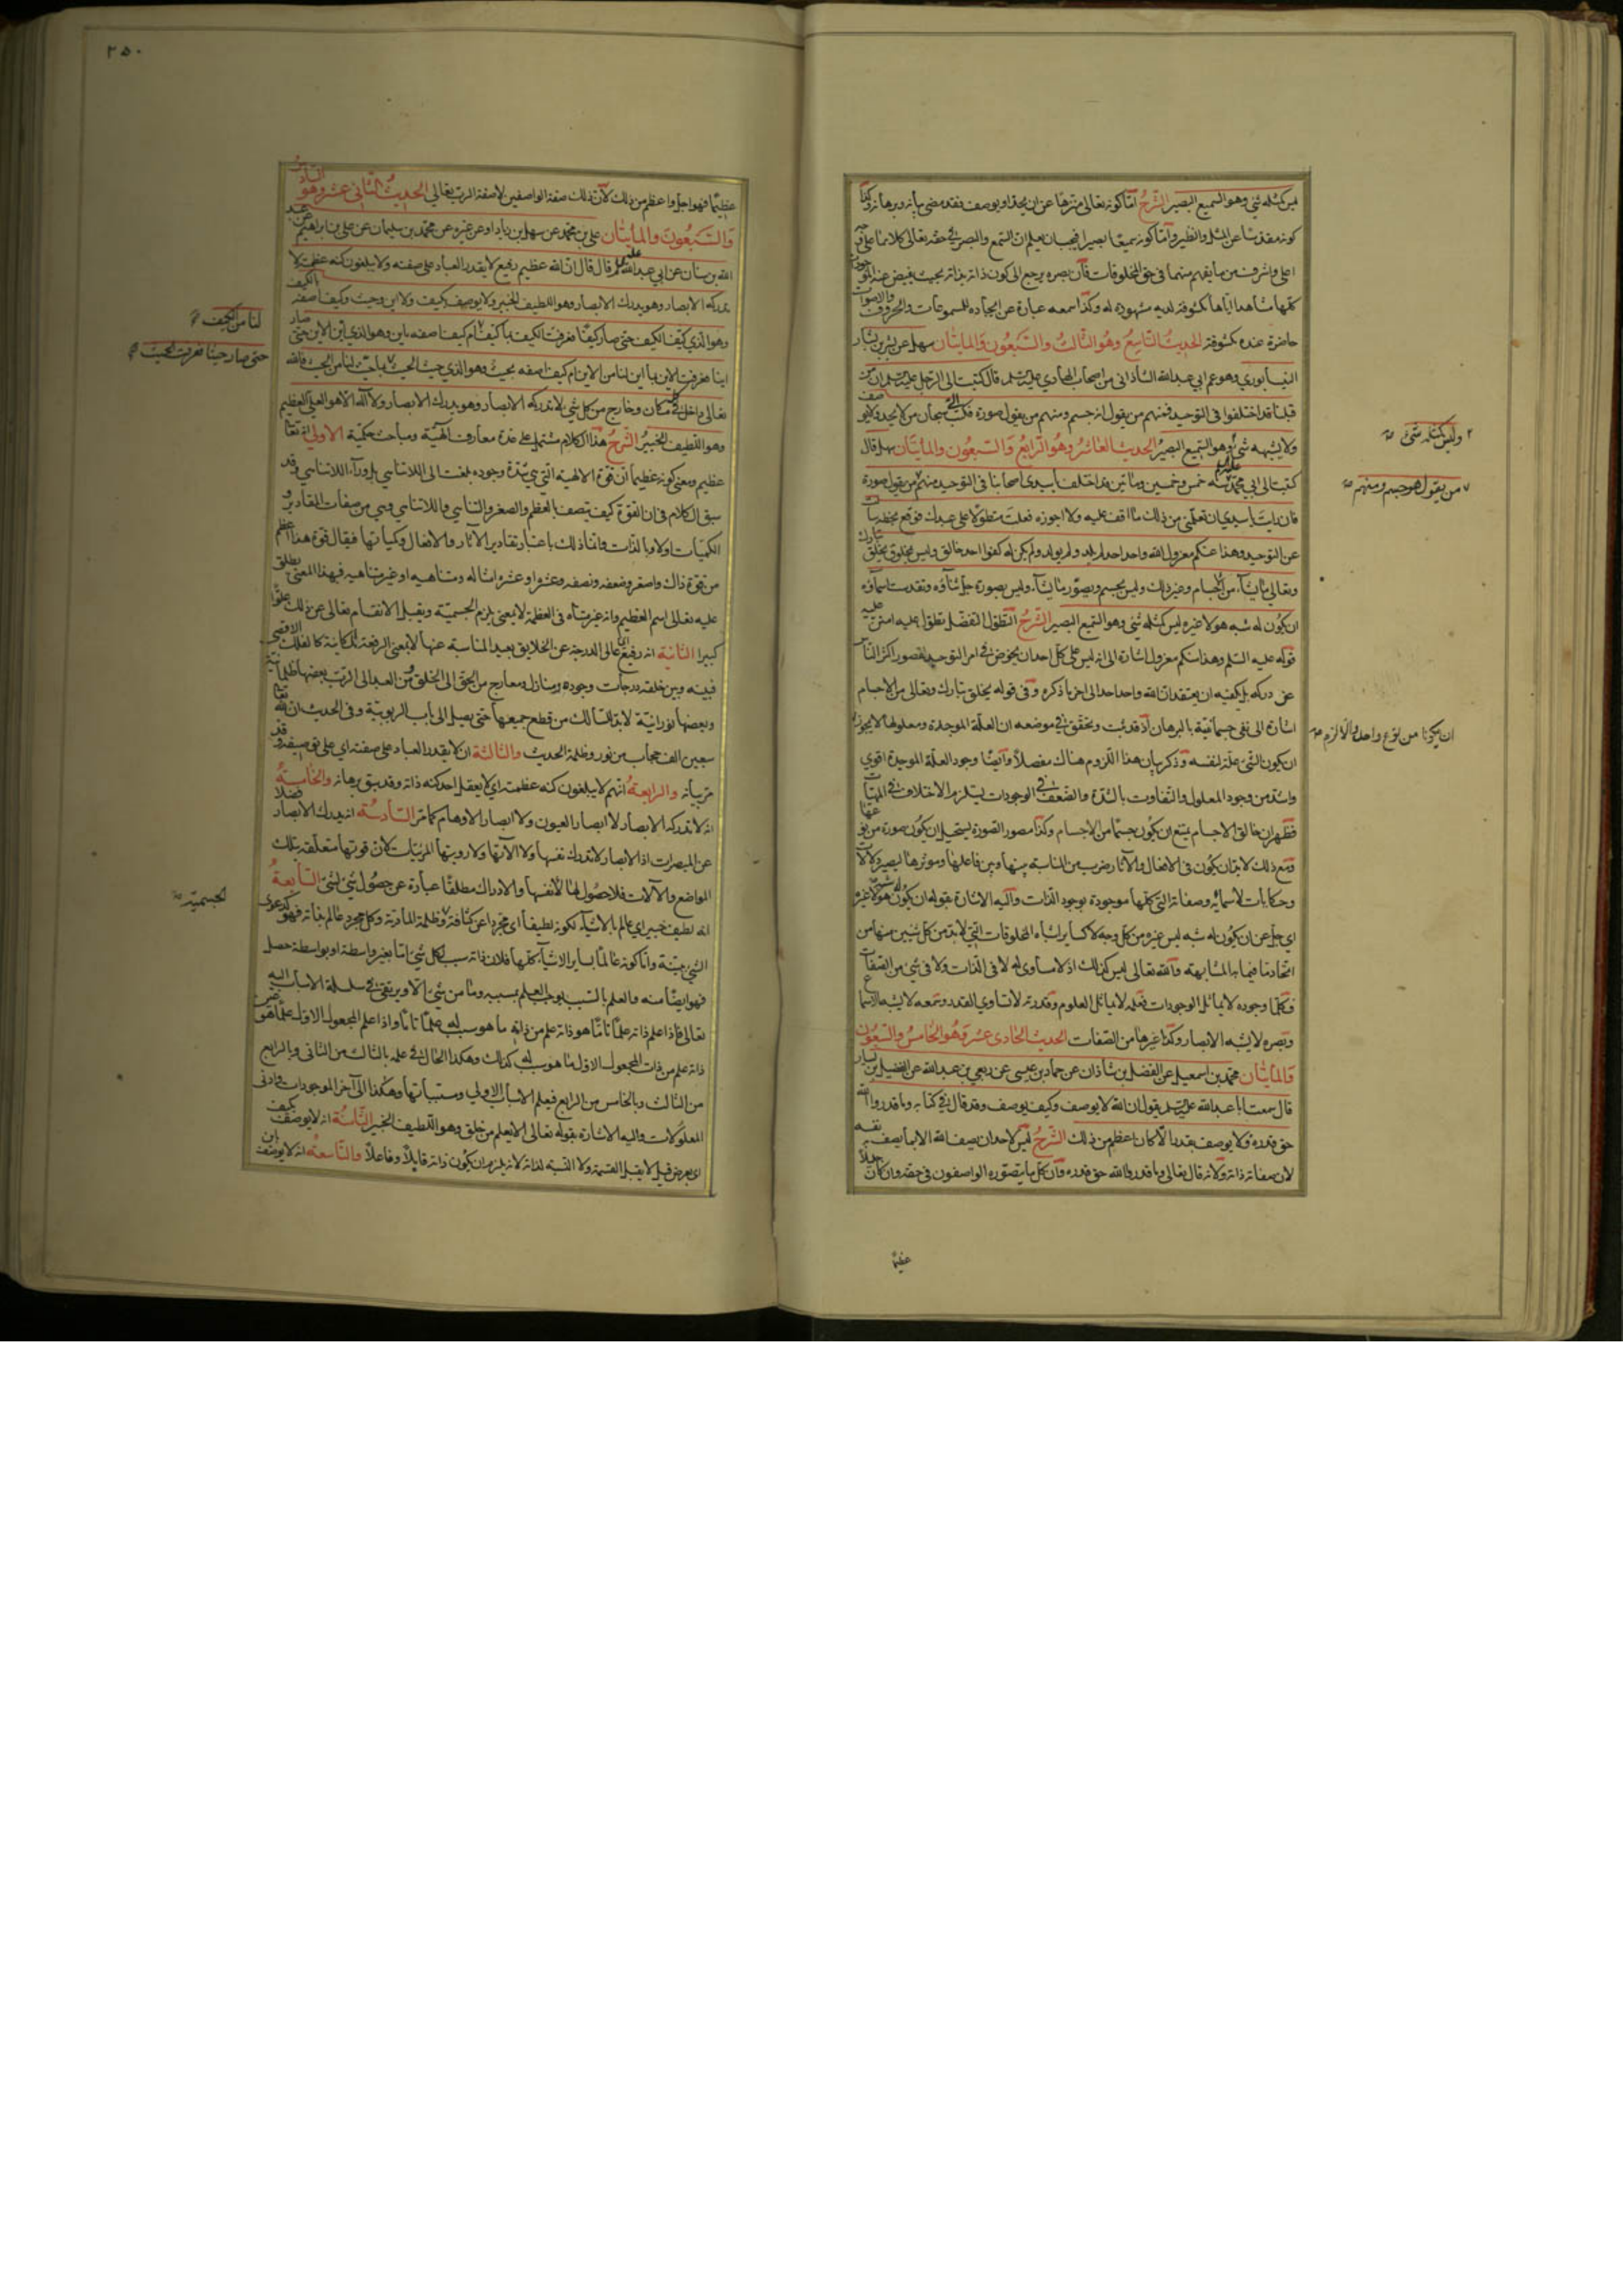 ليس كمثله شئ وهو السميع البصير الشرح اما كونه تعالى منزها عن ان يحد او يوصف فقد مضى بيانه وبرهانه وكذا
كونه مقدسا عن المثل والنظير واما كونه سميعا بصيرا فيجب ان يعلم ان السمع والبصر في حقه تعالى كلاهما على وجه
اعلى واشرف مما يفهم منهما في حق المخلوقات فان بصره يرجع الى كون ذاته بذاته بحيث يفيض عنه الموجودات
كلها مشاهدا اياها مكشوفة لديه مشهودة له وكذا سمعه عبارة عن ايجاده للمسموعات والحروف والاصوات
حاضرة عنده مكشوفة الحديث التاسع وهو الثالث والسبعون والمايتان سهل عن بشر بن بشار
النيسابوري وهو عم ابي عبد الله الشاذاني من اصحاب الهادي عليه السلم قال كتبت الى الرجل عليه السلم ان من
قبلنا قد اختلفوا في التوحيد فمنهم من يقول انه جسم ومنهم من يقول صورة فكتب الي سبحان من لا يحد ولا يوصف
ولا يشبهه شئ وهو السميع البصير الحديث العاشر وهو الرابع والسبعون والمايتان سهل قال
كتبت الى ابي محمد عليه السلم سنة خمس وخمسين ومأتين قد اختلف يا سيدي اصحابنا في التوحيد منهم من يقول صورة
فان رايت يا سيدي ان تعلمني من ذلك ما اقف عليه ولا اجوزه فعلت متطولا على عبدك فوقع بخطه سألت
عن التوحيد وهذا عنكم معزول الله واحد احد لم يلد ولم يولد ولم يكن له كفوا احد خالق وليس بمخلوق يخلق تبارك
وتعالى ما يشاء من الاجسام وغير ذلك وليس بجسم ويصور ما يشاء وليس بصورة جل ثناؤه وتقدست اسماؤه
ان يكون له شبه هو لا غيره ليس كمثله شئ وهو السميع البصير الشرح التطول التفضل تطول عليه امتن عليه
قوله عليه السلم وهذا عنكم معزول اشارة الى انه ليس على كل احد ان يخوض في امر التوحيد لقصور اكثر الناس
عن دركه بل يكفيه ان يعتقد ان الله واحد احد الى اخر ما ذكره وفي قوله يخلق تبارك وتعالى من الاجسام
اشارة الى نفي جسمانيته بالبرهان اذ قد ثبت وتحقق في موضعه ان العلة الموجدة ومعلولها لا يجوز
ان يكون الشئ علة لنفسه وذكر بيان هذا اللزوم هناك مفصلا وايضا وجود العلة الموجدة اقوي
واشد من وجود المعلول والتفاوت بالشدة والضعف في الوجودات يستلزم الاختلاف في المهيات
فظهر ان خالق الاجسام يمتنع ان يكون جسما من الاجسام وكذا مصور الصورة يستحيل ان يكون صورة من نوعها
ومع ذلك لابد ان يكون في الافعال والآثار ضرب من المناسبة بينها وبين فاعلها ومؤثرها ليصير دلالات
وحكايات لاسمائه وصفاته التي كلها موجودة بوجود الذات واليه الاشارة بقوله ان يكون له شبه هو لا غيره
اي جل عن ان يكون له شبه ليس غيره من كل وجه لا كساير اشباه المخلوقات التي لابد من كل شيئين منها من
اتحادهما فيما به المشابهة والله تعالى ليس كذلك اذ لا مساوى له لا في الذات ولا في شئ من الصفات
فكما وجوده لا يماثل الوجودات فعلمه لا يماثل العلوم وقدرته لا تساوي القدر وسمعه لا يشبه الاسماع
وبصره لا يشبه الابصار وكذا غيرها من الصفات الحديث الحادى عشر وهو الخامس والسبعون
والمايتان محمد بن اسمعيل عن الفضل بن شاذان عن حماد بن عيسى عن ربعي بن عبد الله عن الفضيل بن يسار
قال سمعت ابا عبد الله عليه السلم يقول ان الله لا يوصف وكيف يوصف وقد قال في كتابه وما قدروا الله
حق قدره فلا يوصف بقدر الا كان اعظم من ذلك الشرح ليس لاحد ان يصف الله الا بما يصف به نفسه
لان صفاته ذاته ولانه قال تعالى وما قدروا الله حق قدره ولان كل ما يتصوره الواصفون في حقه وان كان جليلا
وليس كمثله شئ
من يقول هو جسم ومنهم
ان يكونا من نوع واحد والا لازم
عظيما
٢٥٠
عظيما فهو اجل واعظم من ذلك لان ذلك صفة الواصفين لا صفة الرب تعالي الحديث الثاني عشر وهو السادس
والسبعون والمايتان علي بن محمد عن سهل بن زياد او عن غيره عن محمد بن سليمان عن علي بن ابراهيم عن عبد
الله بن سنان عن ابي عبد الله عليه السلم قال قال ان الله عظيم رفيع لا يقدر العباد على صفته ولا يبلغون كنه عظمته لا
تدركه الابصار وهو يدرك الابصار وهو اللطيف الخبير ولا يوصف بكيف ولا اين وحيث وكيف اصفه بالكيف
وهو الذي كيف الكيف حتى صار كيفا فعرفت الكيف بما كيف ام كيف اصفه باين وهو الذي اين الاين حتى صار
اينا فعرفت الاين بما اين لنا من الاين ام كيف اصفه بحيث وهو الذي حيث الحيث بما حيث لنا من الحيث فالله
تعالى داخل في كل مكان وخارج من كل شئ لا تدركه الابصار وهو يدرك الابصار ولا اله الا هو العلي العظيم
وهو اللطيف الخبير الشرح هذا الكلام مشتمل على عدة معارف الهية ومباحث حكمية الاولي انه تعالى
عظيم ومعنى كونه عظيما ان قوة الالهية التي هي شدة وجوده بلغت الى اللاتناهي بل وراء اللاتناهي وقد
سبق الكلام في ان القوة كيف يتصف بالعظم والصغر والتناهي واللاتناهي وهي من صفات المقادير و
الكميات اولا وبالذات وانما ذلك باعتبار تقادير الآثار والافعال وكمياتها فيقال قوة هذا اعظم
من قوة ذاك واصغر وضعفه ونصفه وعشره او عشرة امثاله ومتناهيه او غير متناهيه فبهذا المعنى يطلق
عليه تعالى اسم العظيم وانه غير متناه في العظمة لا بمعنى يلزم الجسمية ويقبل الانقسام تعالى عن ذلك علوا
كبيرا الثانية انه رفيع اي عالى الدرجة عن الخلايق بعيد المناسبة عنها لا بمعنى الرفعة المكانية كالفلك الاقصى
فبينه وبين خلقه درجات وجودية ومنازل ومعارج من الحق الى الخلق ومن العبد الى الرب بعضها ظلمانية
وبعضها نورانية لابد للسالك من قطع جميعها حتى يصل الى باب الربوبية وفي الحديث ان لله تعالى
سبعين الف حجاب من نور وظلمة الحديث والثالثة ان لا يقدر العباد على صفته اي على توصيفه وقد
مر بيانه والرابعة انهم لا يبلغون كنه عظمته اي لا يعقل احد كنه ذاته وقد سبق برهانه والخامسة
انه لا تدركه الابصار لا ابصار العيون ولا ابصار الاوهام كما مر السادسة انه يدرك الابصار فضلا
عن المبصرات اذ الابصار لا تدرك نفسها ولا آلاتها ولا رويتها المرئيات لان قوتها متعلقة بتلك
المواضع والآلات فلا حصول لها لانفسها والادراك مطلقا عبارة عن حصول شئ لشئ السابعة
انه لطيف خبير اي عالم بالاشياء لكونه لطيفا اى مجردا عن كثافة وظلمة المادية وكل مجرد عالم بذاته فهو
الشئ وانما كونه عالما بساير الاشياء كلها فلان ذاته سبب لكل شئ اما بغير واسطة او بواسطة حصل
فهو ايضا منه والعلم بالسبب يوجب العلم بمسببه وما من شئ الا ويرتقي في سلسلة الاسباب اليه
تعالى فاذا علم ذاته علما تاما هو ذاته علم من ذاته ما هو سبب له علما تاما واذا علم المجعول الاول علما هو
ذاته علم من ذات المجعول الاول ما هو سبب له كذلك وهكذا الحال في علمه بالثالث من الثانى وبالرابع
من الثالث وبالخامس من الرابع فيعلم الاسباب الاولي ومسبباتها وهكذا الى آخر الموجودات وادنى
المعلولات واليه الاشارة بقوله تعالى الا يعلم من خلق وهو اللطيف الخبير الثامنة انه لا يوصف بكيف
اي بعرض قبل لا يقبل القسمة ولا النسبة لذاته لانه يلزم ان يكون ذاته قابلا وفاعلا والتاسعة انه لا يوصف باين
لنا من الكيف
حتى صار حيثا فعرفت الحيث
الجسمية